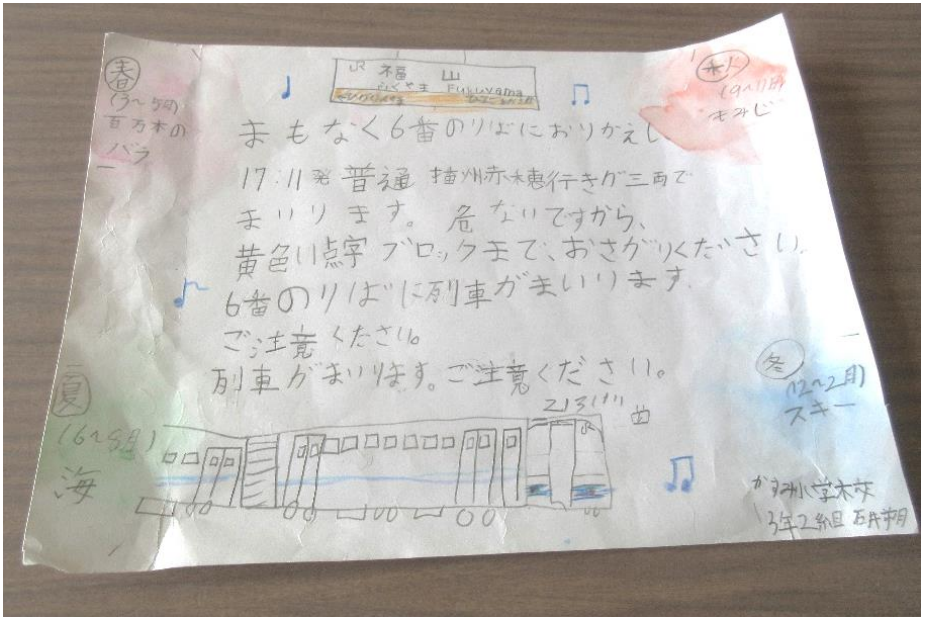 春
(3〜5月)
百万本の
バラ
JR 福山
ふくやま Fukuyama
秋
(9〜11月)
もみじ
まもなく6番のりばにおりかえし
17:11発 普通 播州赤穂行きが三両で
まいります。危ないですから、
黄色い点字ブロックまで、おさがりください。
6番のりばに列車がまいります。
ご注意ください。
列車がまいります。ご注意ください。
夏
(6〜8月)
海
冬
(12〜2月)
スキー
かすみ小学校
3年2組 石井朔